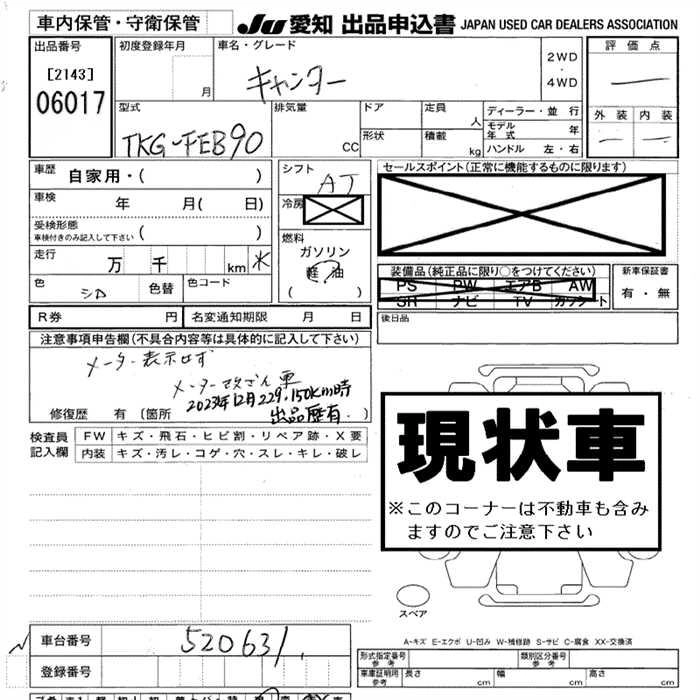 車内保管・守衛保管 JU 愛知 出品申込書 JAPAN USED CAR DEALERS ASSOCIATION
出品番号 初度登録年月 車名・グレード 評価点
[2143] 月 キャンター 2WD・4WD
06017 外装 内装
型式 排気量 ドア 定員 人 ディーラー・並行
TKG-FEB90 CC 形状 積載 kg モデル年式 年
ハンドル 左・右
車歴 自家用・( ) シフト AT セールスポイント(正常に機能するものに限ります)
車検 年 月( 日) 冷房
受検形態 ( )
車検付きのみ記入して下さい
燃料 ガソリン
走行 万 千 km ※ 軽油
( )
装備品(純正品に限り○をつけてください) 新車保証書
PS PW エアB AW 有・無
SR ナビ TV カセット
色 シロ 色替 色コード
R券 円 名変通知期限 月 日 後日品
注意事項申告欄(不具合内容等は具体的に記入して下さい)
メーター表示せず
メーター改ざん車
2023年12月229,150km時
出品歴有
修復歴 有(箇所
検査員 FW キズ・飛石・ヒビ割・リペア跡・X要
記入欄 内装 キズ・汚レ・コゲ・穴・スレ・キレ・破レ
現状車
※このコーナーは不動車も含み
ますのでご注意下さい
スペア
A-キズ E-エクボ U-凹み W-補修跡 S-サビ C-腐食 XX-交換済
車台番号 520631
登録番号
形式指定番号 参考 類別区分番号 参考
車庫証明用 参考 長さ cm 幅 cm 高さ cm